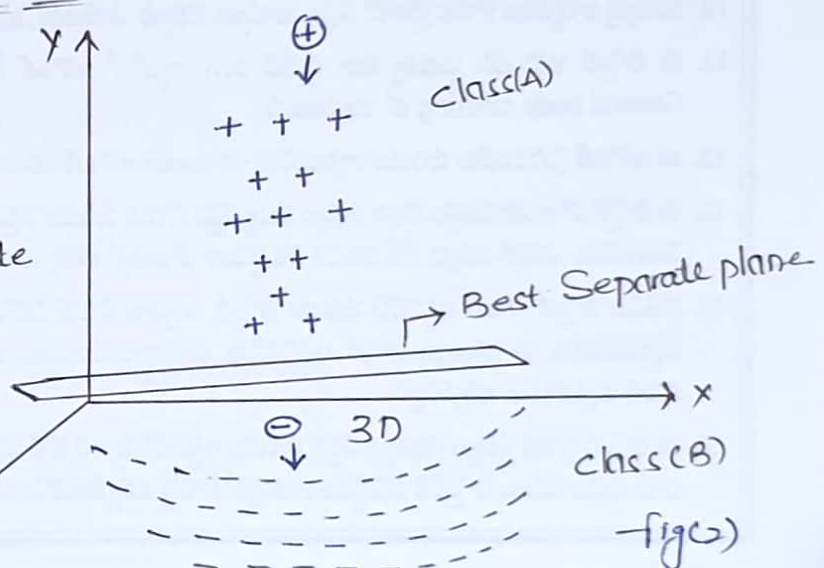 Y
⊕
↓
class(A)
+ + +
+ +
+ + +
+ +
+
+ +
te
Best Separate plane
x
⊖
↓
3D
class(B)
fig(2)